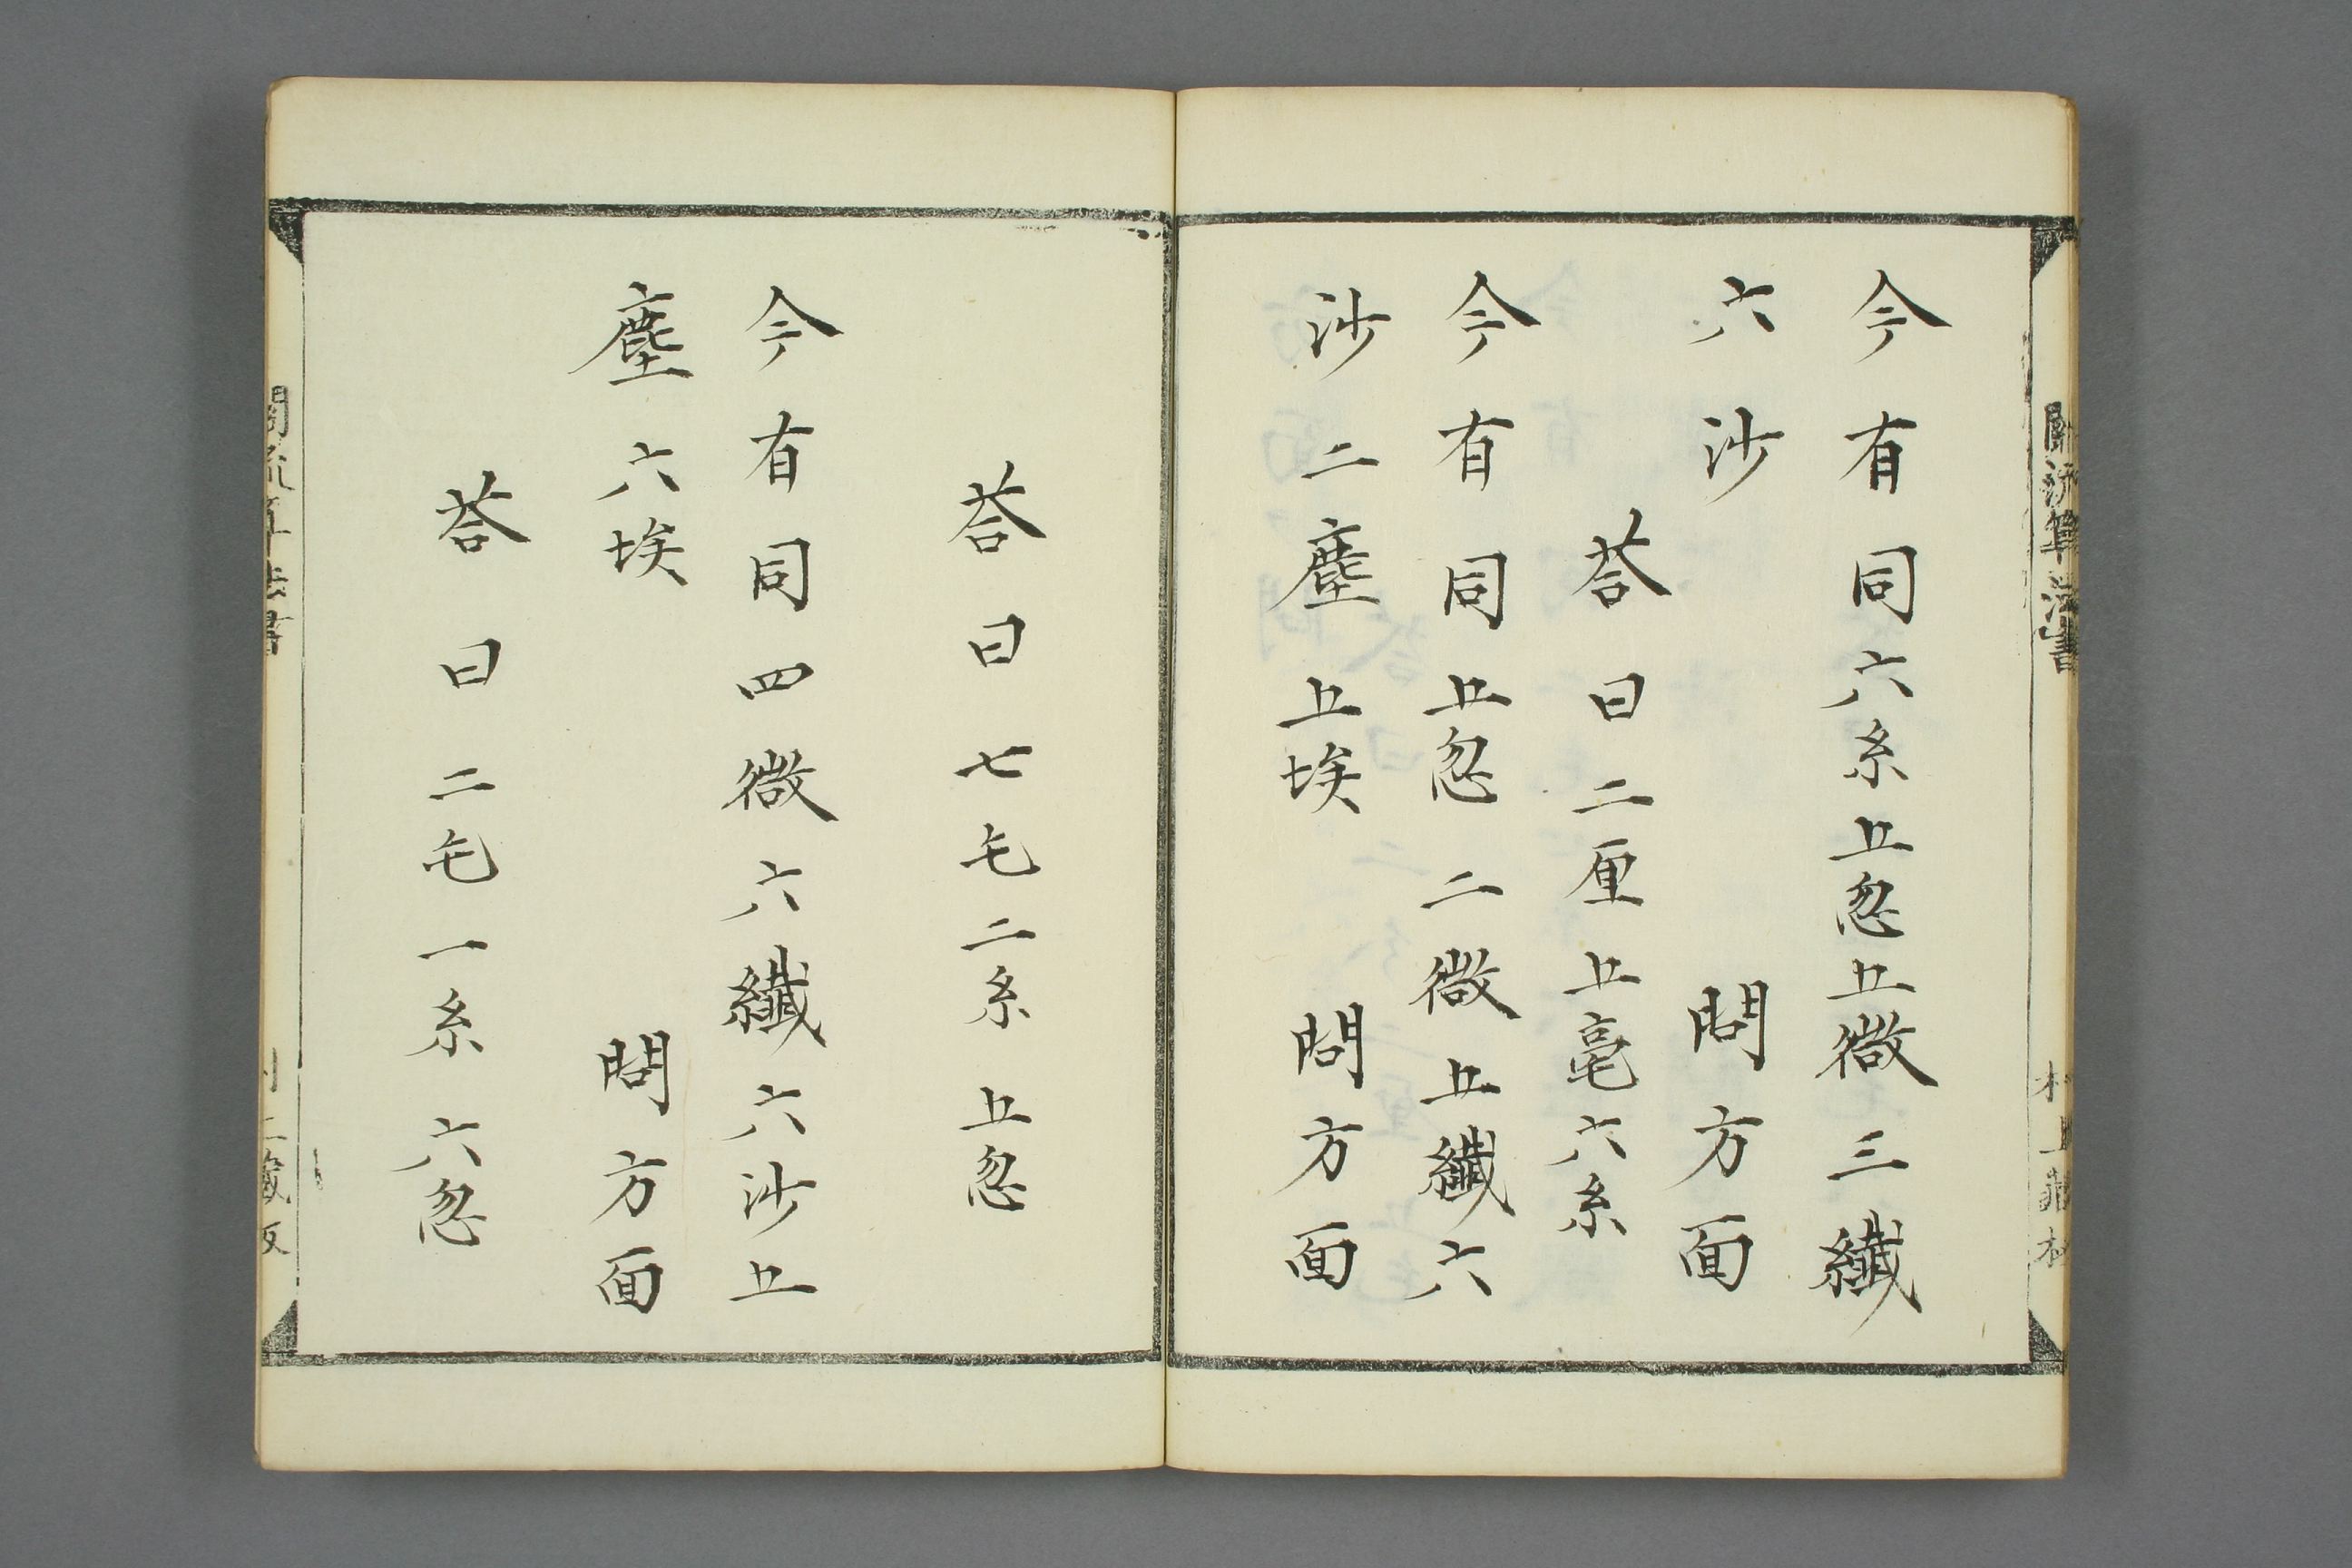 關流算法書
今有同六糸五忽五微三纖
六沙　問方面
荅曰二厘五毫六糸
今有同五忽二微五纖六
沙二塵五埃　問方面
荅曰七毛二糸五忽
今有同四微六纖六沙五
塵六埃　問方面
荅曰二毛一糸六忽